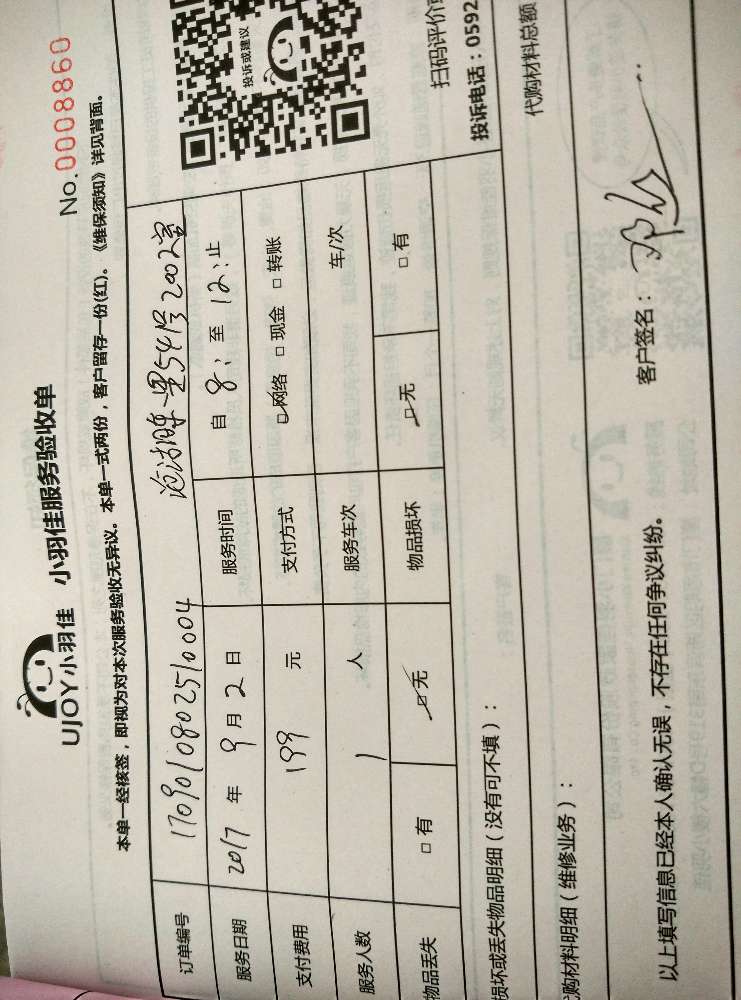 UJOY小羽佳 小羽佳服务验收单
No.0008860
本单一经核签，即视为对本次服务验收无异议。本单一式两份，客户留存一份(红)。《维保须知》详见背面。
订单编号 1709010802510004
服务日期 2017 年 9 月 2 日 服务时间 自 8 : 至 12 : 止
支付费用 199 元 支付方式 ☑网络 □现金 □转账
服务人数 1 人 服务车次 车/次
物品丢失 □有 ☑无 物品损坏 ☑无 □有
投诉或建议
损坏或丢失物品明细（没有可不填）：
扫码评价
投诉电话：0592
购材料明细（维修业务）：
代购材料总额
以上填写信息已经本人确认无误，不存在任何争议纠纷。
客户签名：